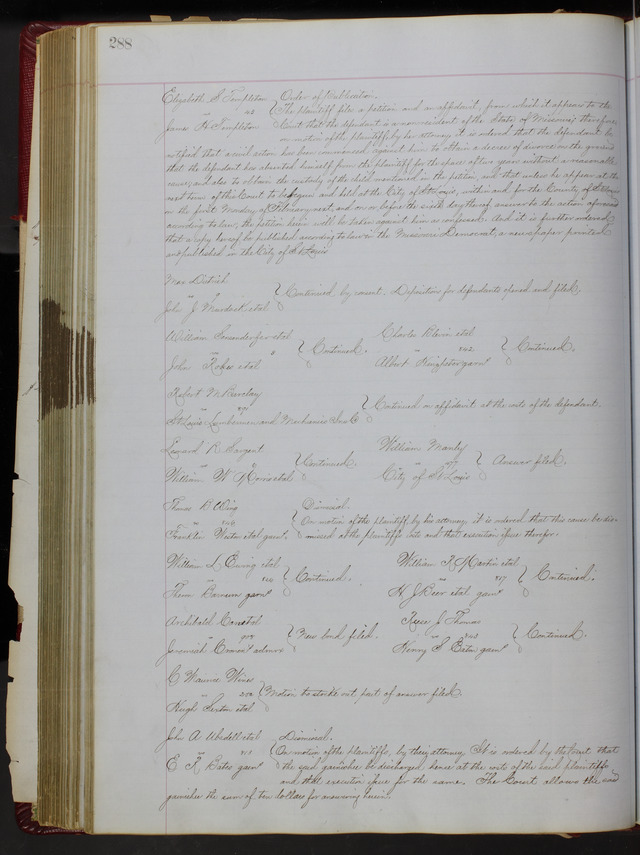 288
Elizabeth S Templeton Order of Publication.
vs 42 The plaintiff files a petition and an affidavit, from which it appears to the
James H Templeton Court that the defendant is a non resident of the State of Missouri; therefore,
on motion of the plaintiff, by her attorney it is ordered that the defendant be
notified that a civil action has been commenced against him to obtain a decree of divorce on the ground
that the defendant has absented himself from the plaintiff for the space of two year without a reasonable
cause; and also to obtain the custody of the child mentioned in the petition, and that unless he appear at the
next term of this Court to be begun and held at the City of St Louis, within and for the County of St Louis
on the first Monday of February next, and on or before the sixth day thereof answer to the action aforesaid
according to law, the petition herein will be taken against him as confessed. And it is further ordered
that a copy hereof be published according to law in the Missouri Democrat, a newspaper printed
and published in the City of St Louis
Max Dietrich
vs Continued by consent. Deposition for defendants opened and filed.
John J Murdock etal
William etal
vs Continued.
John etal
Charles etal
vs 742 Continued.
Albert garnt
Robert M Barclay
vs Continued on affidavit at the costs of the defendant.
St Louis Lumbermen and Mechanics Ins Co
Leonard R Sargent
vs Continued.
William W Morris etal
William Manley
vs Answer filed.
City of St Louis
Thomas B Wing Dismissal.
vs On motion of the plaintiff, by his attorney it is ordered that this cause be dis-
Franklin Weston etal garnt. missed at the plaintiffs costs and that execution issue therefor.
William L Ewing etal
vs Continued.
Thomas garnt
William K Martin etal
vs 717 Continued.
H J etal garnt
Archibald etal
vs New bond filed.
Jeremiah admr
Reece J Thomas
vs Continued.
Henry S Eaton garnt
C Maurice Wines
vs 252 Motion to strike out part of answer filed.
Hugh Sexton etal
John A Ubsdell etal Dismissal.
vs On motion of the plaintiffs, by their attorney It is ordered by the Court that
E K Bates garnt the said garnishee be discharged hence at the costs of the said plaintiffs
and that execution issue for the same. The Court allows the said
garnishee the sum of ten dollars for answering herein.